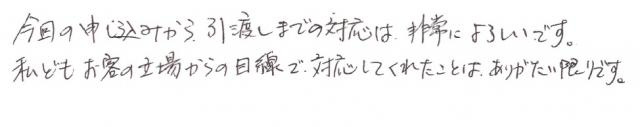 今回の申し込みから、引渡しまでの対応は、非常によろしいです。
私どもお客の立場からの目線で、対応してくれたことは、ありがたい限りです。